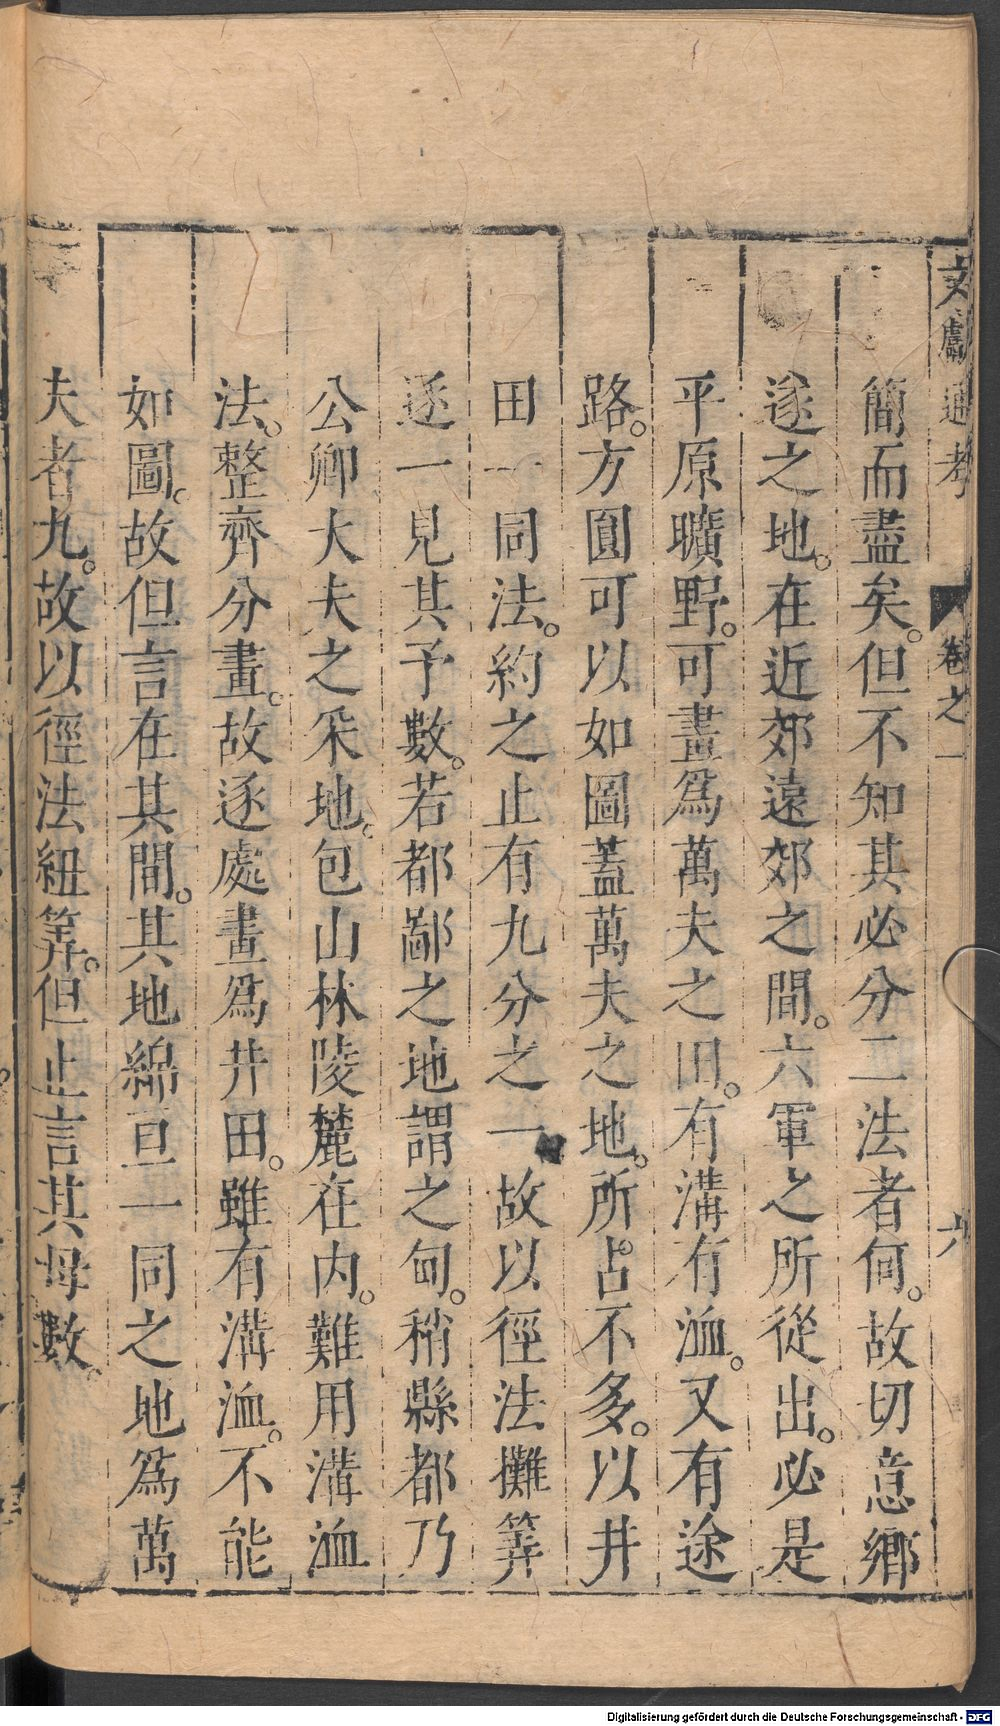 文獻通考 卷之一 六
簡而盡矣。但不知其必分二法者何。故切意鄉
遂之地。在近郊遠郊之間。六軍之所從出。必是
平原曠野。可畫爲萬夫之田。有溝有洫。又有途
路。方圓可以如圖蓋萬夫之地。所占不多。以井
田一同法。約之止有九分之一故以徑法攤筭
逐一見其子數。若都鄙之地謂之甸。稍縣都乃
公卿大夫之采地。包山林陵麓在内。難用溝洫
法。整齊分畫。故逐處畫爲井田。雖有溝洫。不能
如圖。故但言在其間。其地綿亘一同之地爲萬
夫者九。故以徑法紐筭。但止言其母數。
Digitalisierung gefördert durch die Deutsche Forschungsgemeinschaft - DFG